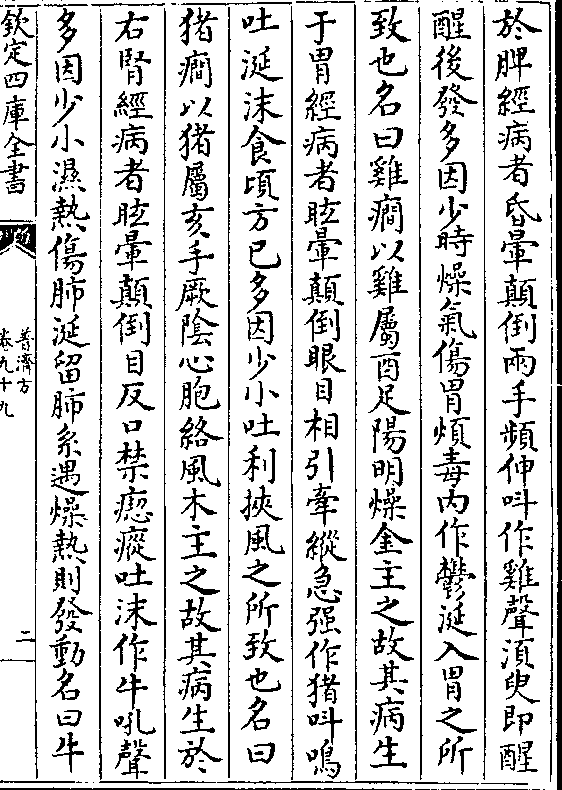 於脾經病者昏暈顛倒兩手頻伸呌作雞聲湏臾即醒
醒後發多因少時燥氣傷胃煩毒内作鬱涎入胃之所
致也名曰雞癎以雞屬酉足陽明燥金主之故其病生
于胃經病者眩暈顛倒眼目相引牽縱急强作猪呌鳴
吐涎沫食頃方已多因少小吐利挾風之所致也名曰
猪癎以猪屬亥手厥陰心胞絡風木主之故其病生於
右腎經病者眩暈顛倒目反口禁瘛瘲吐沫作牛吼聲
多因少小濕熱傷肺涎留肺系遇燥熱則發動名曰牛
欽定四庫全書
普濟方
卷九十九
二